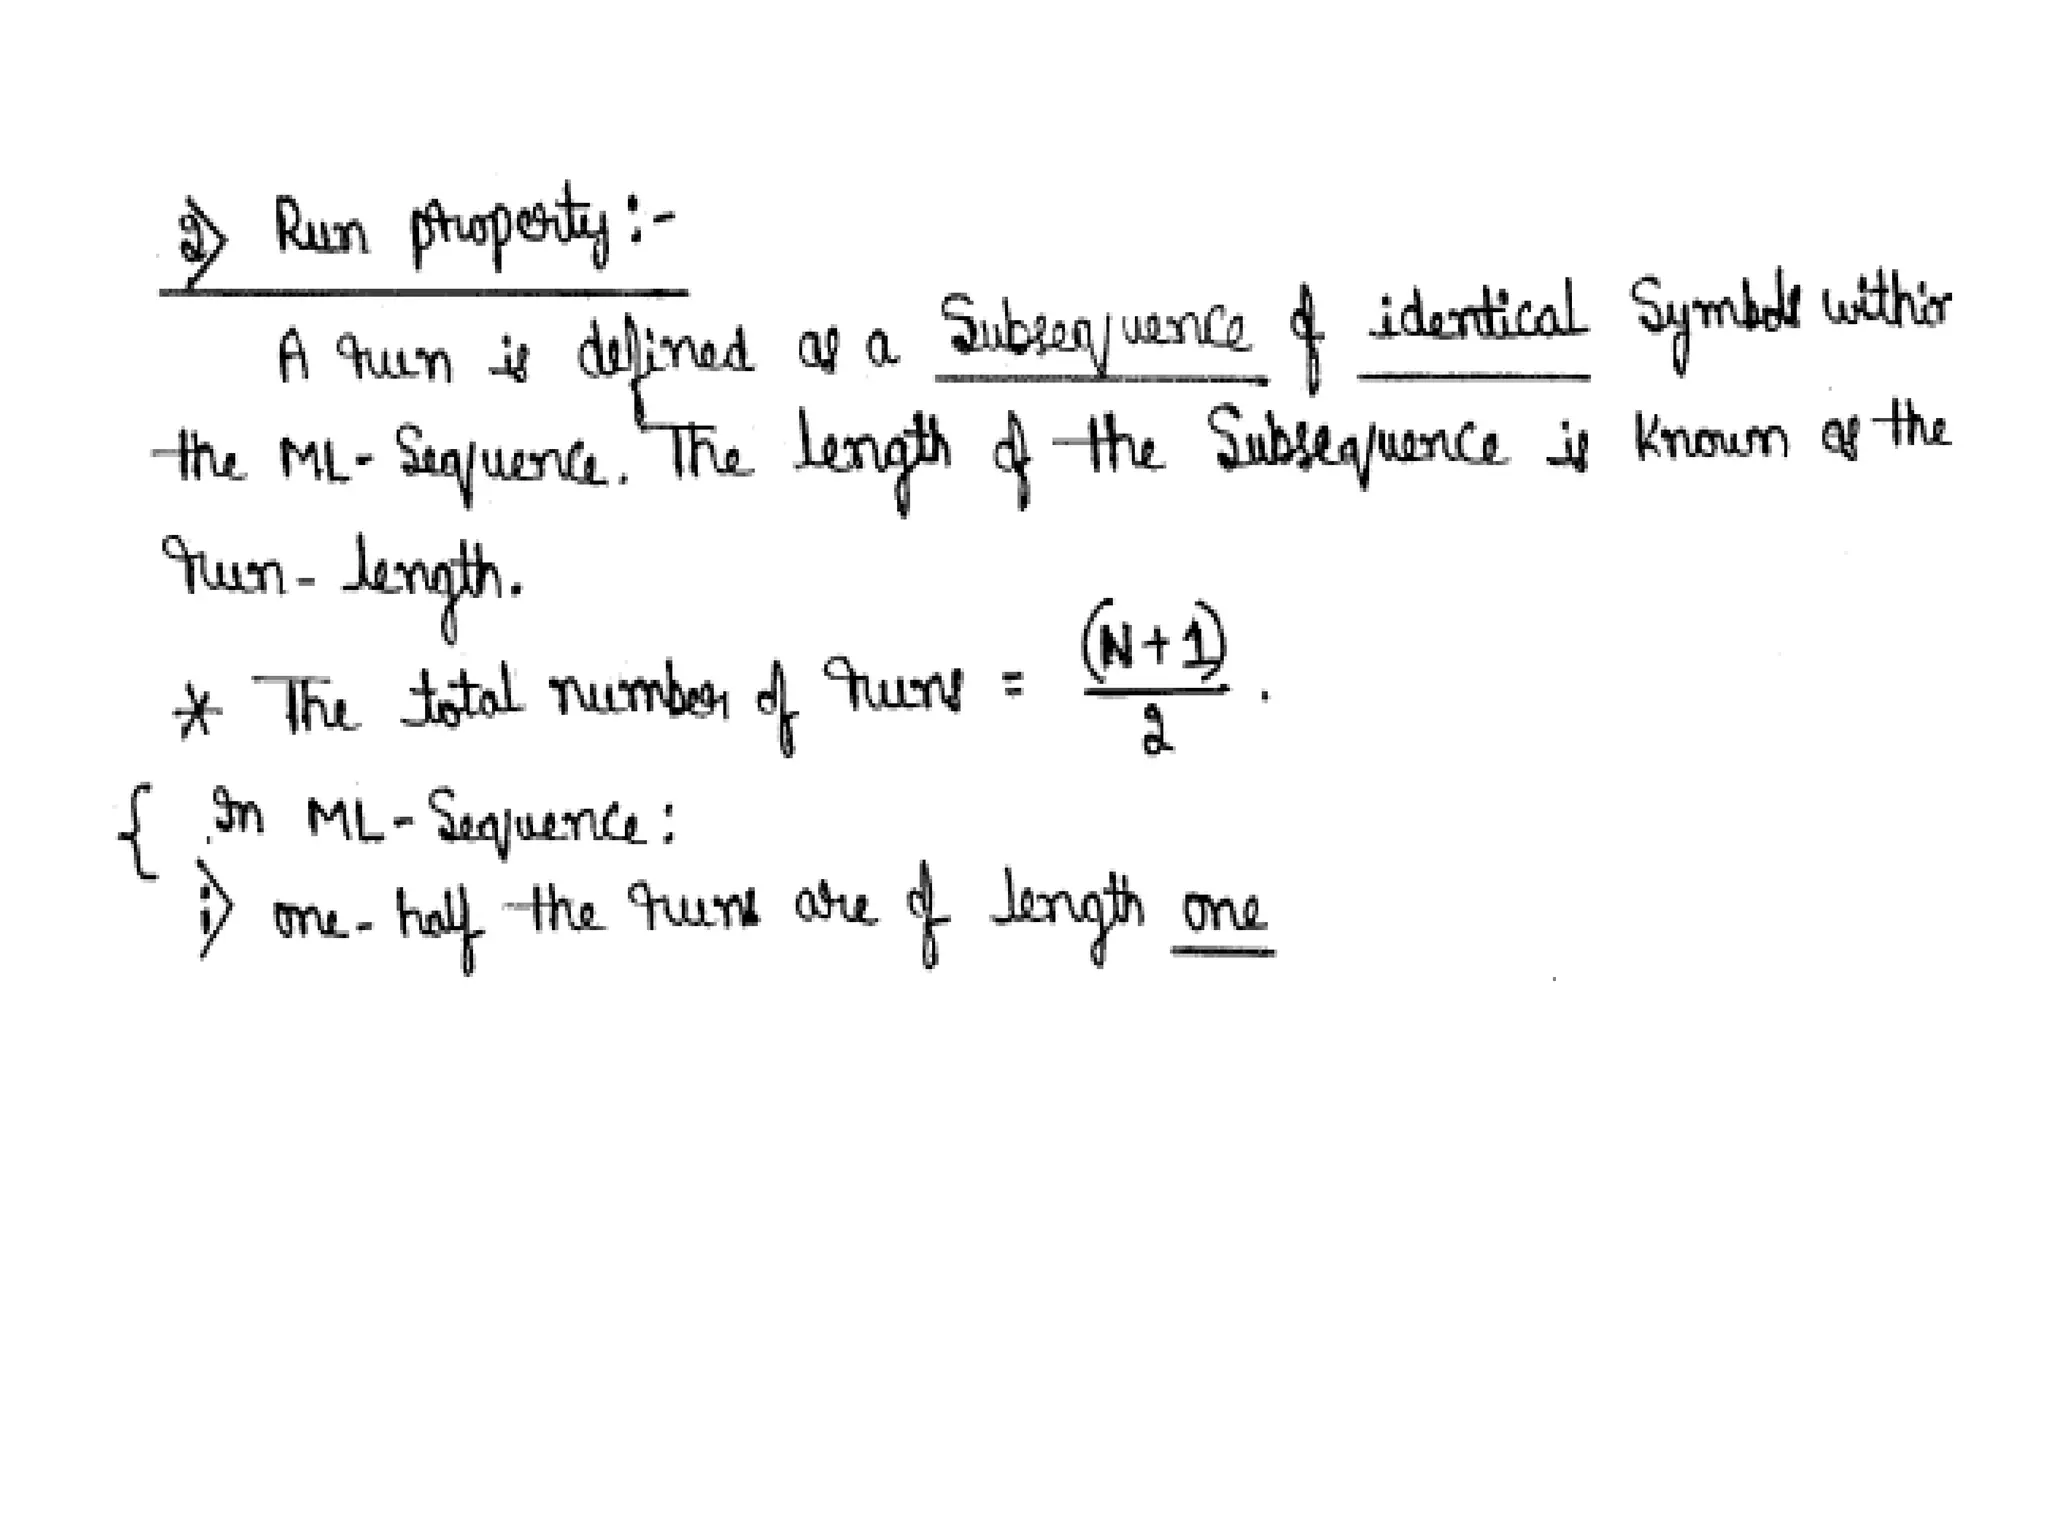 2) Run property:-
A run is defined as a Subsequence of identical Symbols within
the ML-Sequence. The length of the Subsequence is known as the
run-length.
* The total number of runs = (N+1)/2.
{ In ML-Sequence:
i) one-half the runs are of length one